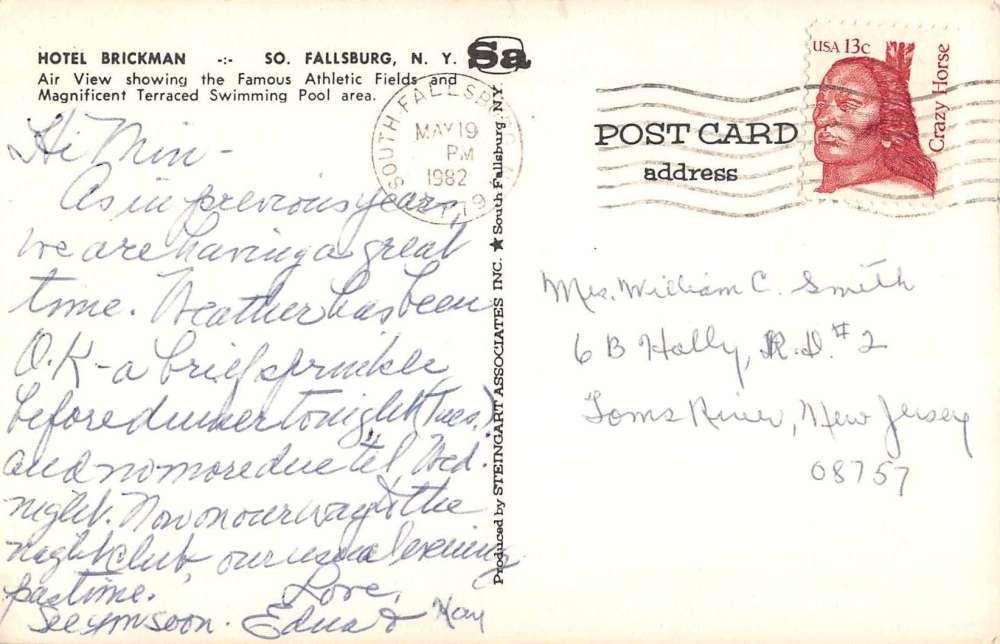 HOTEL BRICKMAN -:- SO. FALLSBURG, N. Y.
Air View showing the Famous Athletic Fields and
Magnificent Terraced Swimming Pool area.
Sa
Hi Min -
As in previous years,
we are having a great
time. Weather has been
O.K - a brief sprinkle
before dinner tonight (Tues.)
and no more due til Wed.
night. Now on our way to the
nightclub, our usual evening
pastime.
Love,
See you soon. Edna & Kay
SOUTH FALLSBURG N.Y.
MAY 19
PM
1982
Produced by STEINGART ASSOCIATES INC. ★ South Fallsburg, N.Y.
USA 13c
Crazy Horse
POST CARD
address
Mrs. William C. Smith
6 B Holly, R.D. #2
Toms River, New Jersey
08757